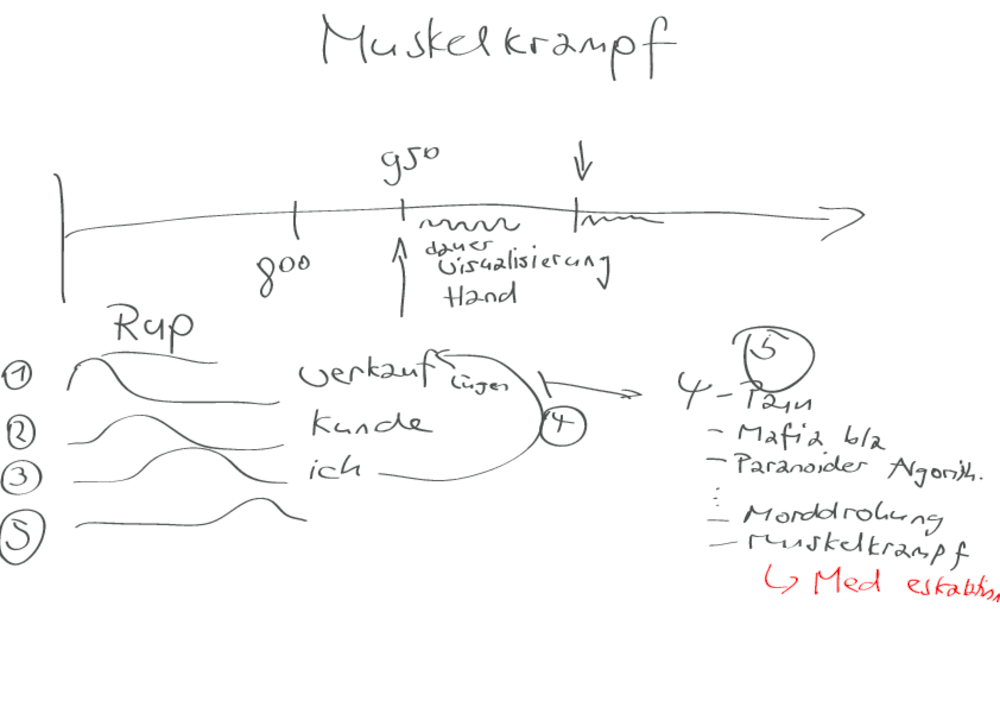 Muskelkrampf
950
800
dauer
Visualisierung
Hand
Rap
① verkauf lügen
② kunde
③ ich
④
⑤
⑤
4 - Pain
- Mafia bla
- Paranoider Algorith.
⋮
- Morddrohung
- Muskelkrampf
↳ Med eskalation